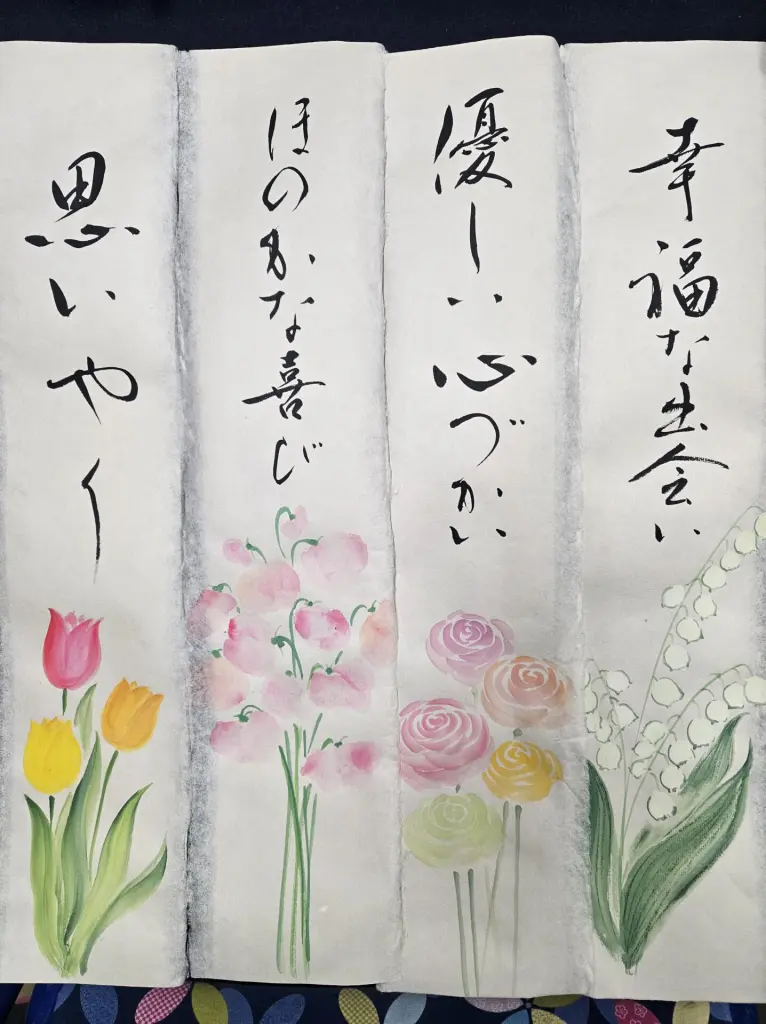 幸福な出会い
優しい心づかい
ほのかな喜び
思いやり